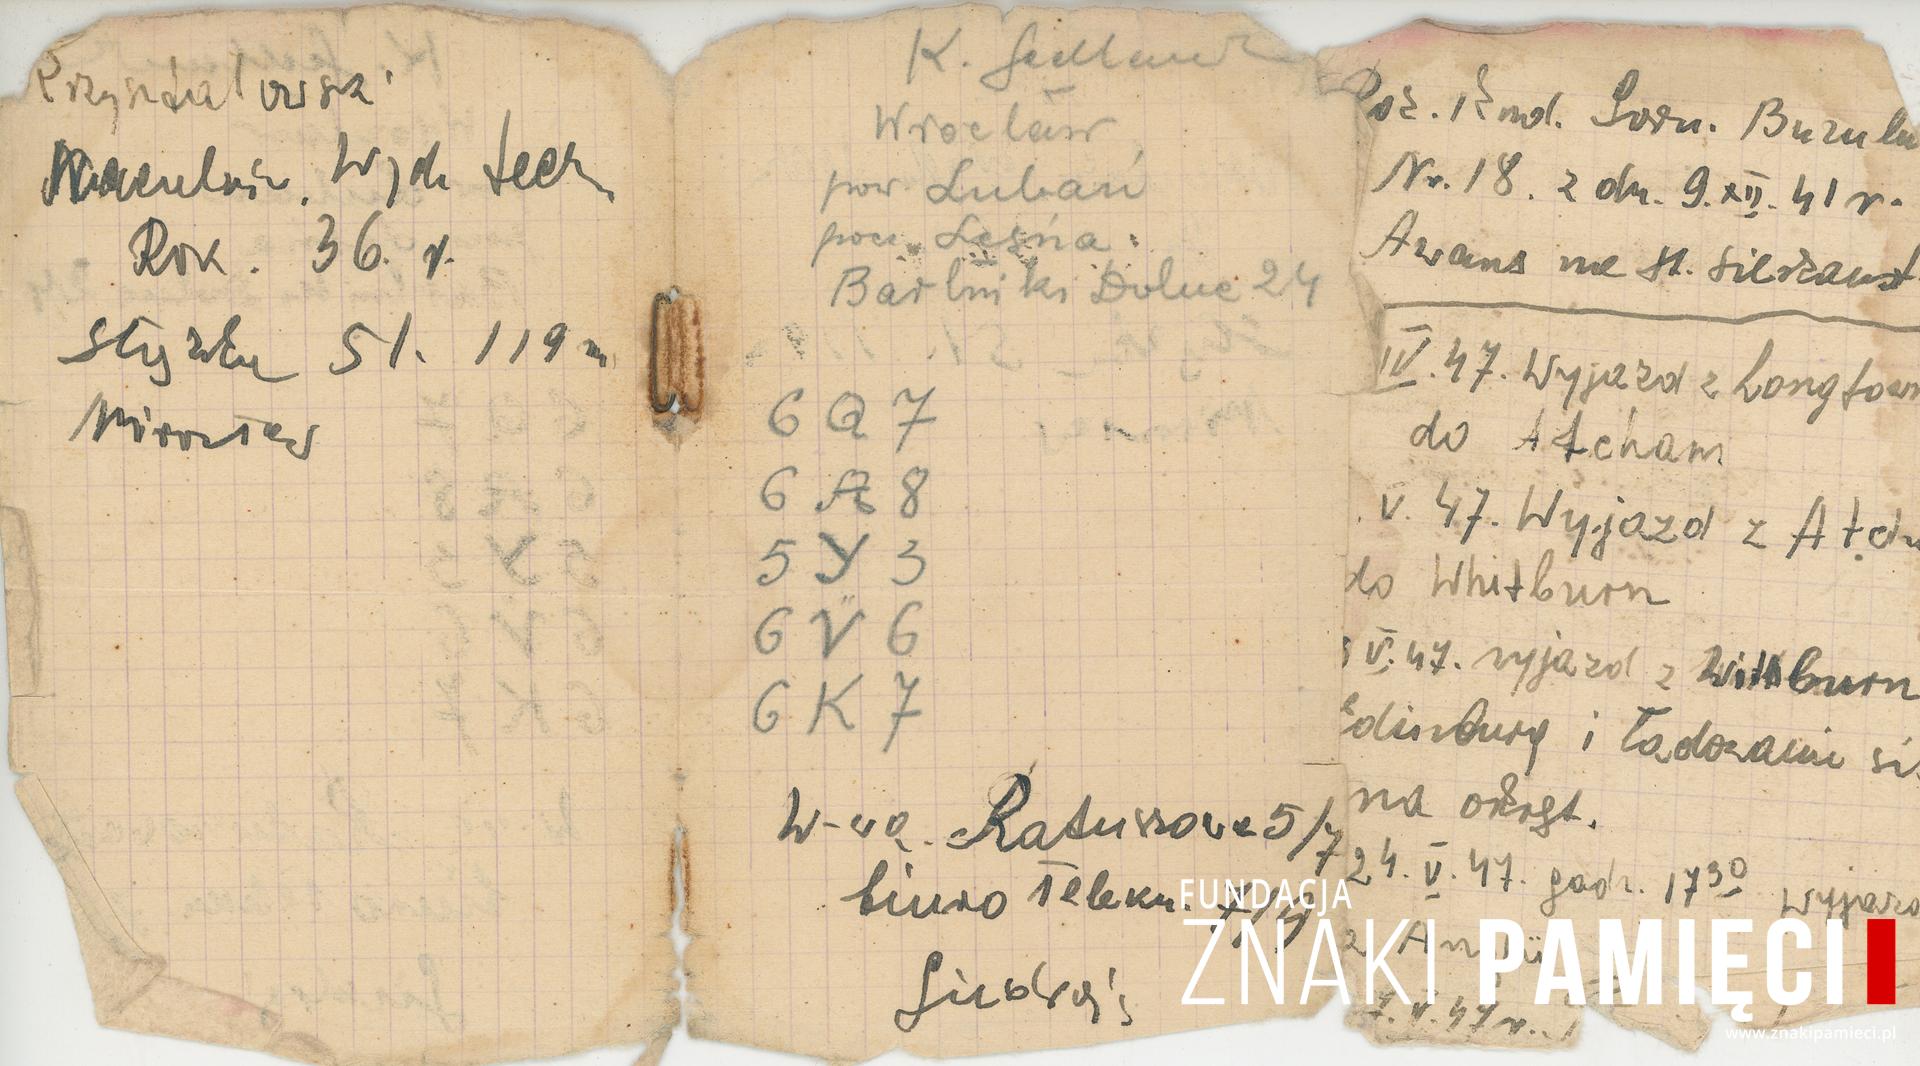 Krzyształowski
Naczelnik. Wydz tech.
Rok. 36. r.
51. 119 m
Mirosław
K.
Wrocław
pow. Lubań
pocz. Leśna.
Bartniki Dolne 24
6 Q 7
6 A 8
5 Y 3
6 V 6
6 K 7
W-wa. Ratuszowa 5/7
biuro
Roz. Kmd. Garn. Buzułu
Nr. 18. z dn. 9. XII. 41 r.
Awans na st. sierżant
IV. 47. Wyjazd z Longtown
do Atcham
. V. 47. Wyjazd z Atch
do Whitburn
V. 47. wyjazd z Whitburn
Edinburg i ładowanie si
na okręt.
24. V. 47. godz. 17 30 wyjazd
z Anglii
V. 47 r.
FUNDACJA
ZNAKI PAMIĘCI
www.znakipamieci.pl